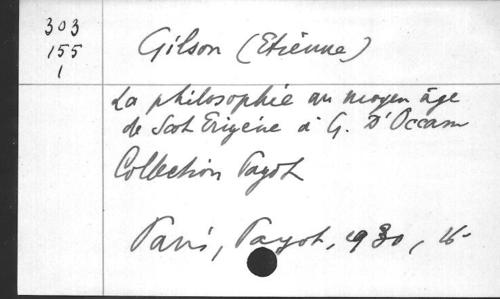 303
155
1
Gilson (Etienne)
La philosophie au moyen âge
de Scot Erigène à G. D'Occam
Collection Payot
Paris, Payot, 1930, 16-